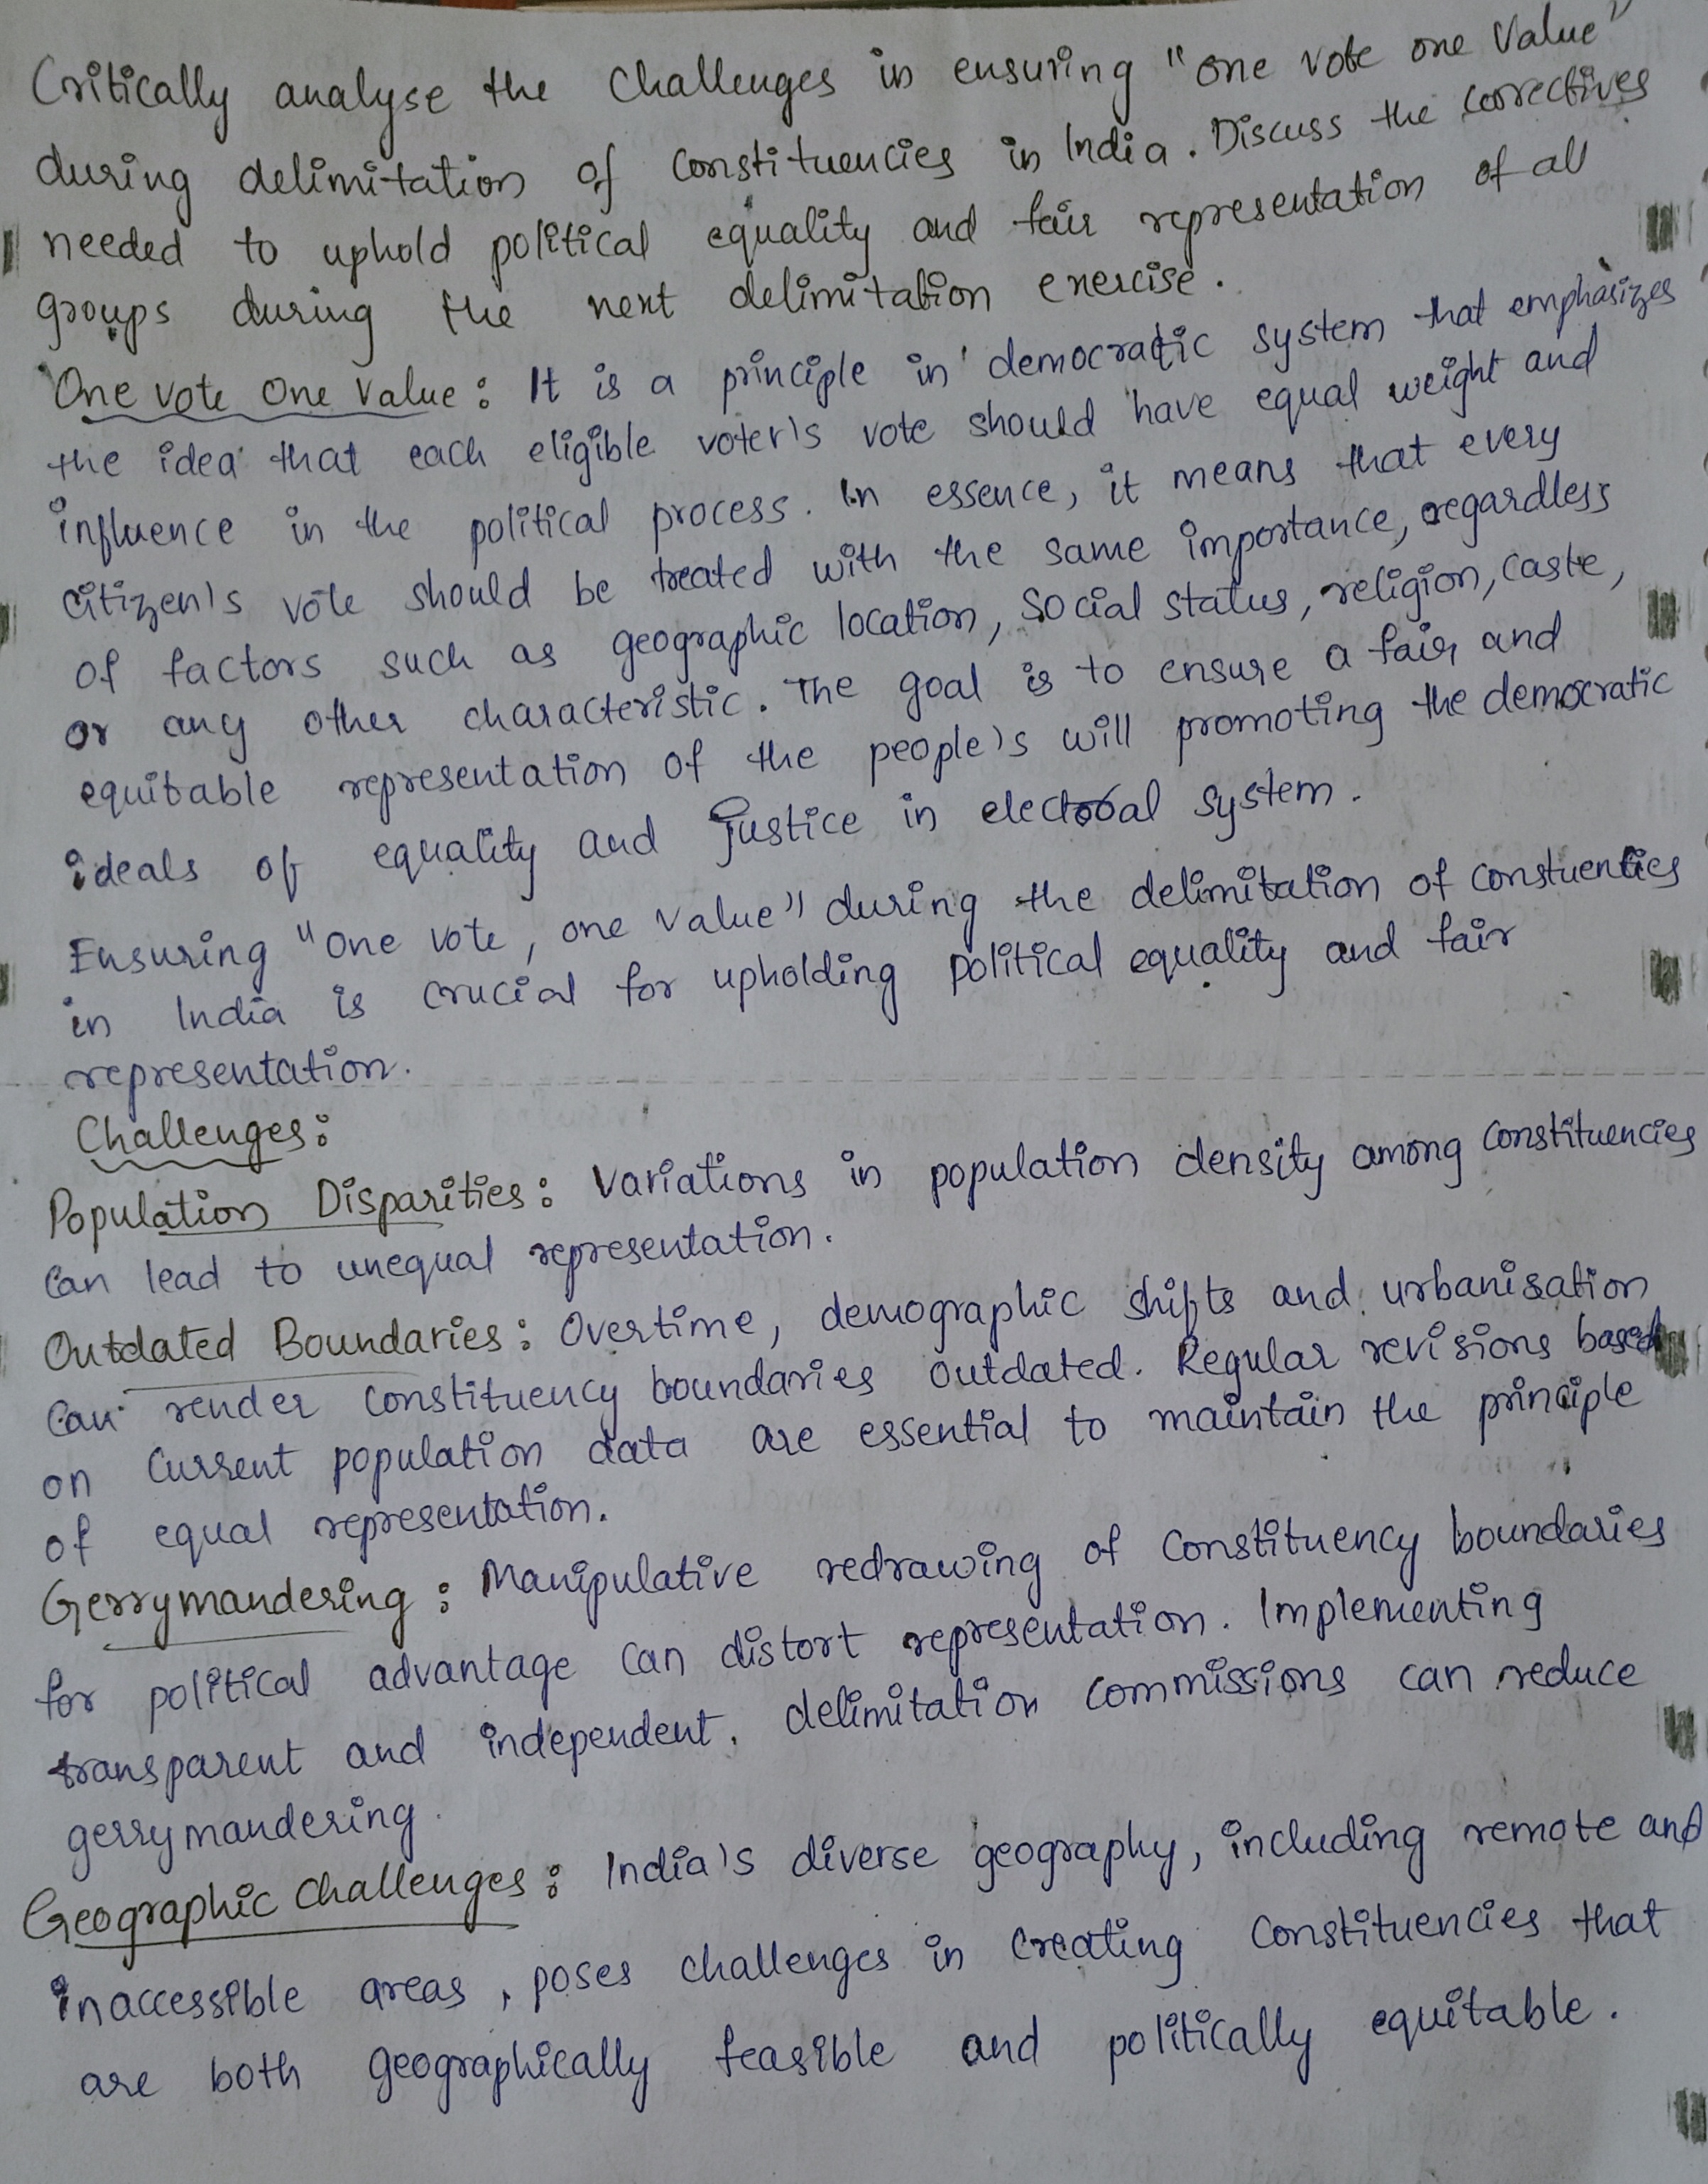 Critically analyse the challenges in ensuring "one vote one value"
during delimitation of constituencies in India. Discuss the correctives
needed to uphold political equality and fair representation of all
groups during the next delimitation exercise.
One vote one value: It is a principle in democratic system that emphasizes
the idea that each eligible voter's vote should have equal weight and
influence in the political process. In essence, it means that every
citizen's vote should be treated with the same importance, regardless
of factors such as geographic location, social status, religion, caste,
or any other characteristic. The goal is to ensure a fair and
equitable representation of the people's will promoting the democratic
ideals of equality and justice in electoral system.
Ensuring "one vote, one value" during the delimitation of constuenties
in India is crucial for upholding political equality and fair
representation.
Challenges:
Population Disparities: Variations in population density among constituencies
can lead to unequal representation.
Outdated Boundaries: Overtime, demographic shifts and urbanisation
can render constituency boundaries outdated. Regular revisions based
on current population data are essential to maintain the principle
of equal representation.
Gerrymandering: Manipulative redrawing of constituency boundaries
for political advantage can distort representation. Implementing
transparent and independent, delimitation commissions can reduce
gerrymandering.
Geographic challenges: India's diverse geography, including remote and
inaccessible areas, poses challenges in creating constituencies that
are both geographically feasible and politically equitable.